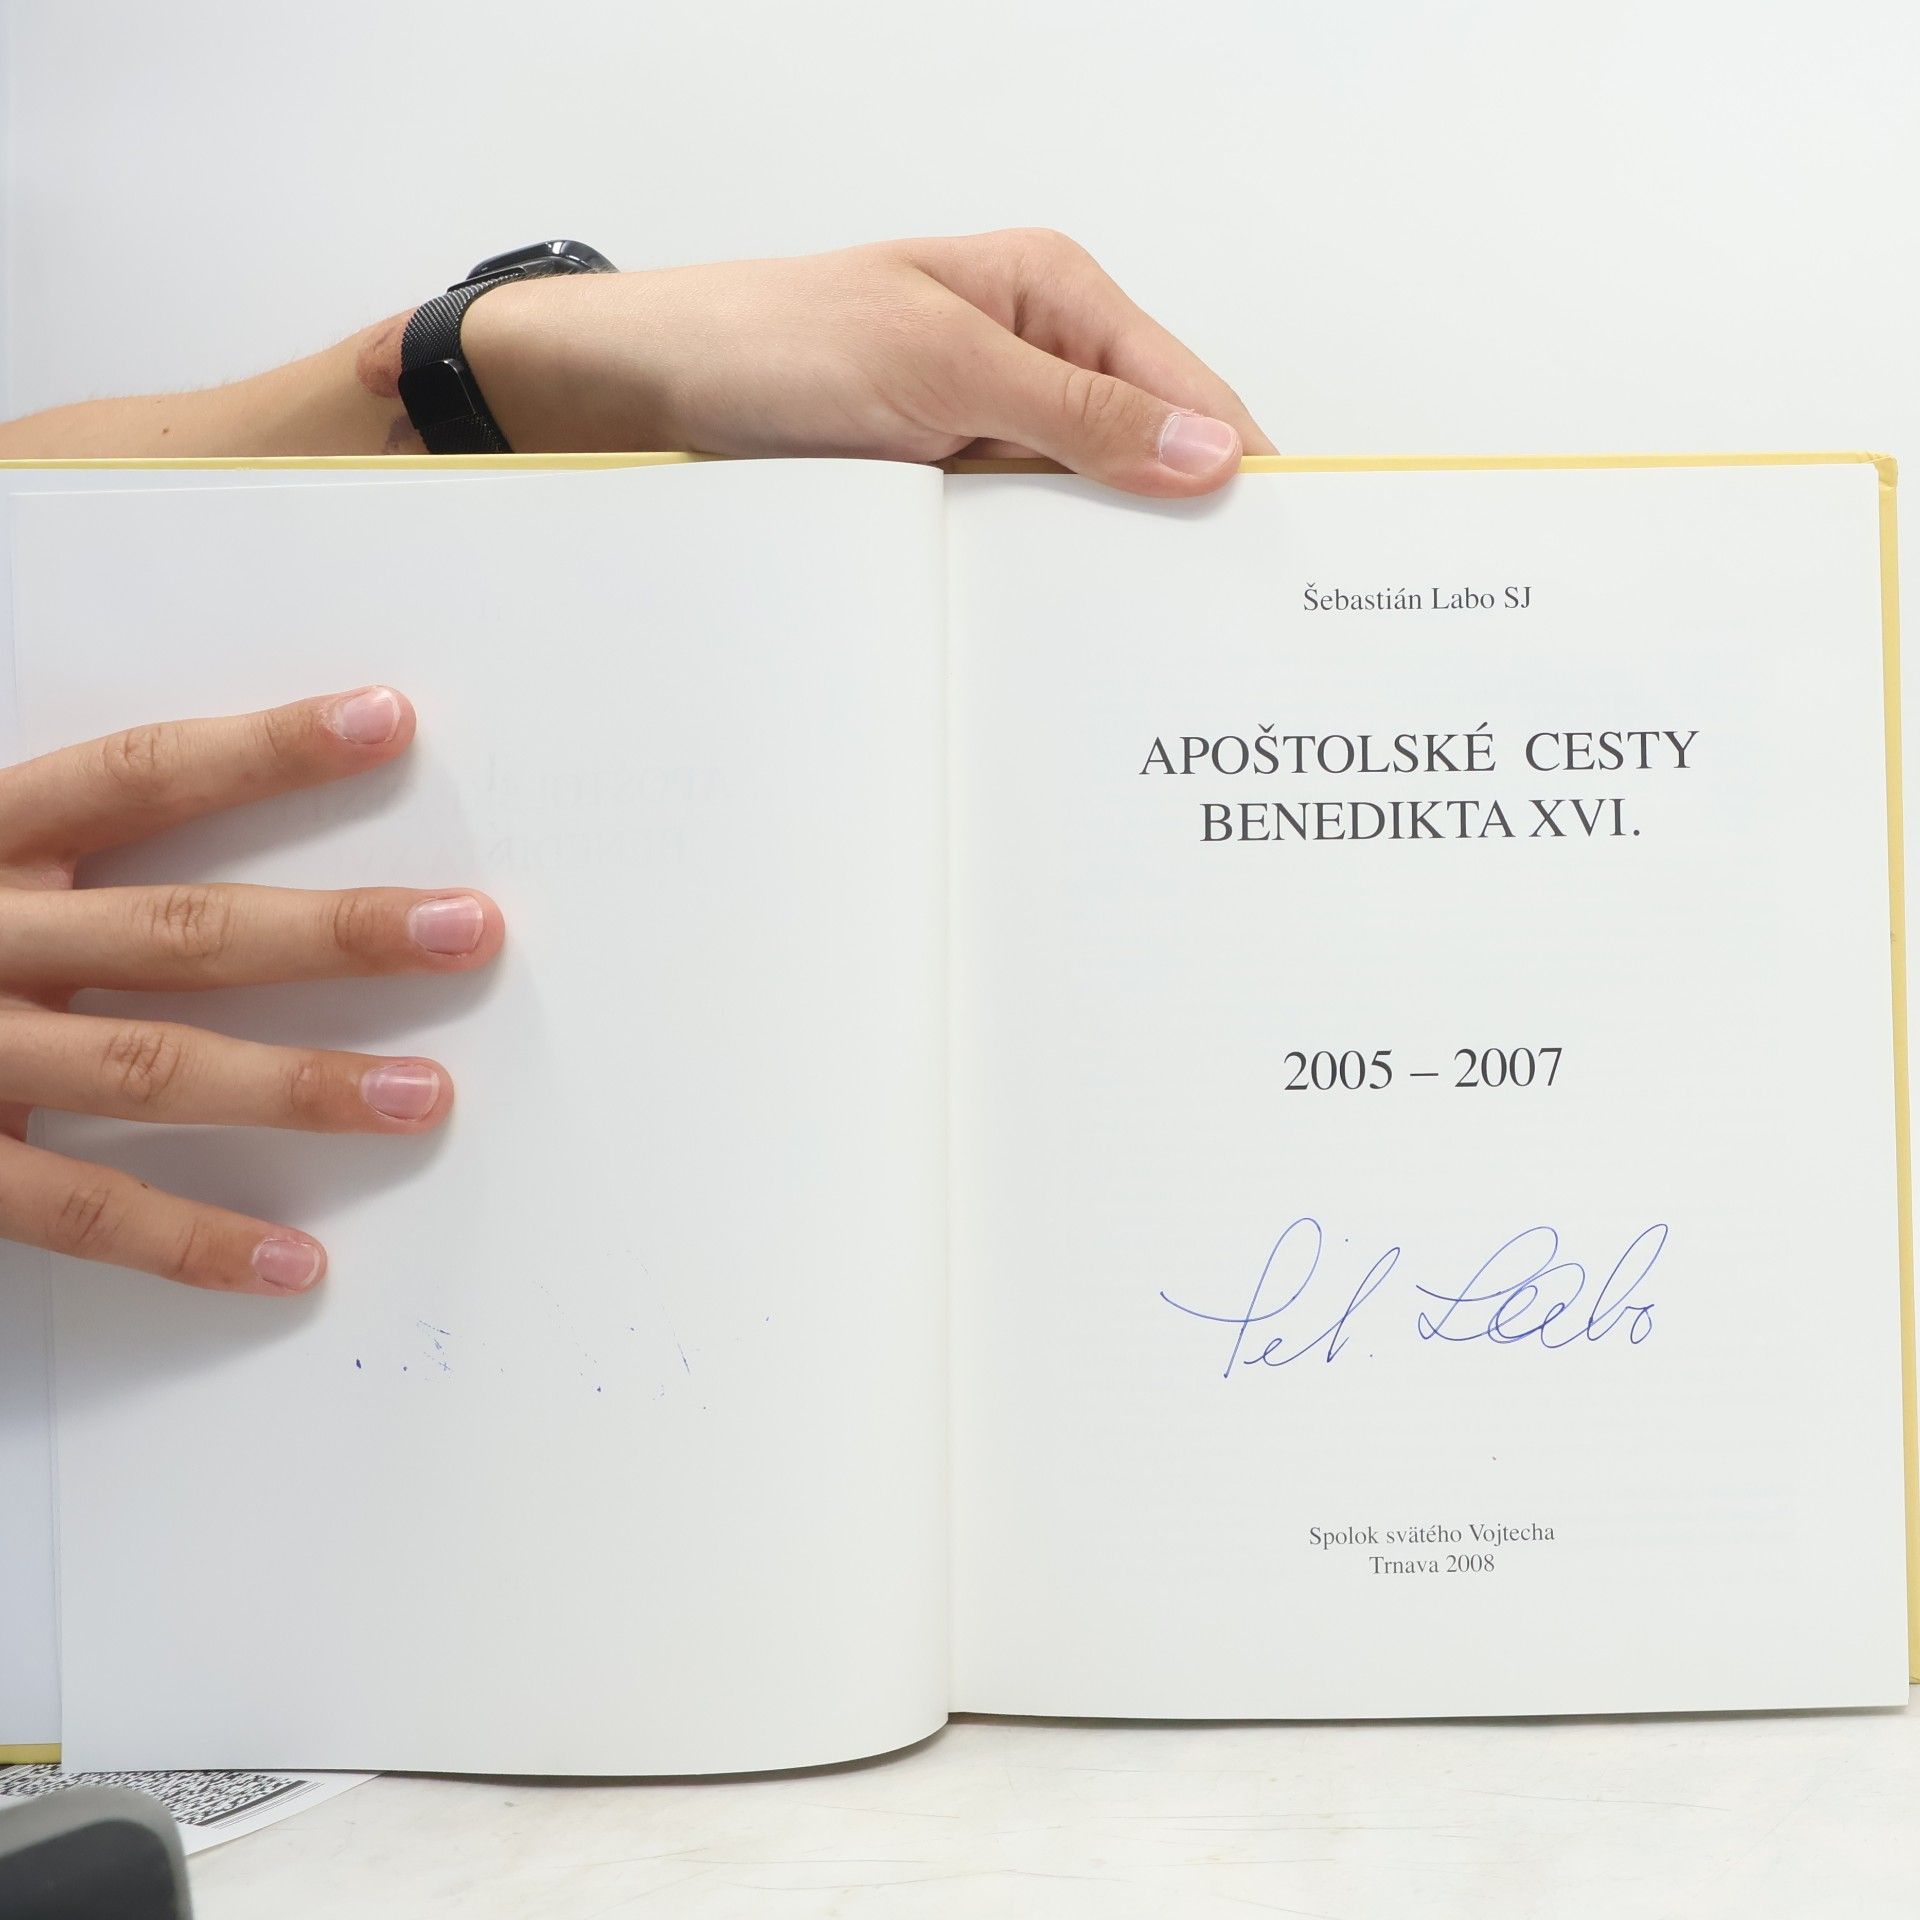 Šebastián Labo SJ
APOŠTOLSKÉ CESTY
BENEDIKTA XVI.
2005 – 2007
Šeb. Labo
Spolok svätého Vojtecha
Trnava 2008